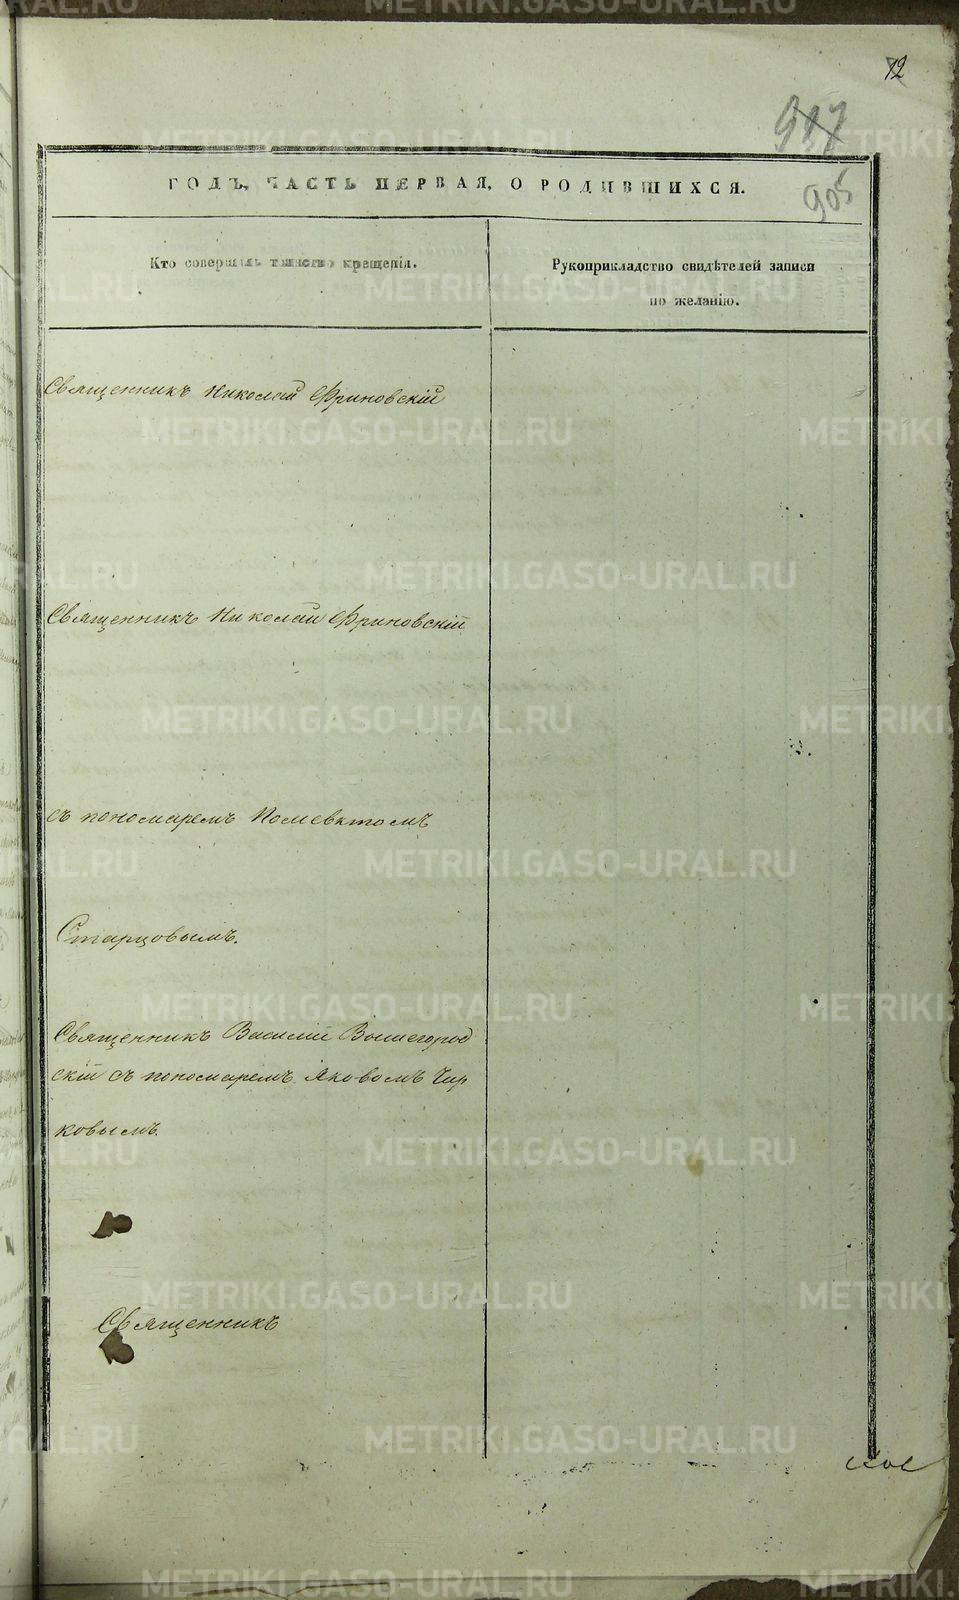 12
917
905
ГОДЪ, ЧАСТЬ ПЕРВАЯ, О РОДИВШИХСЯ.
Кто совершалъ таинство крещенія.
Рукоприкладство свидѣтелей записи
по желанію.
Священникъ Николай Фриновскій
Священникъ Николай Фриновскій
съ пономаремъ Полевктомъ
Старцовымъ.
Священникъ Василій Вышегород
скій съ пономаремъ Яковомъ Чир
ковымъ.
Священникъ
METRIKI.GASO-URAL.RU